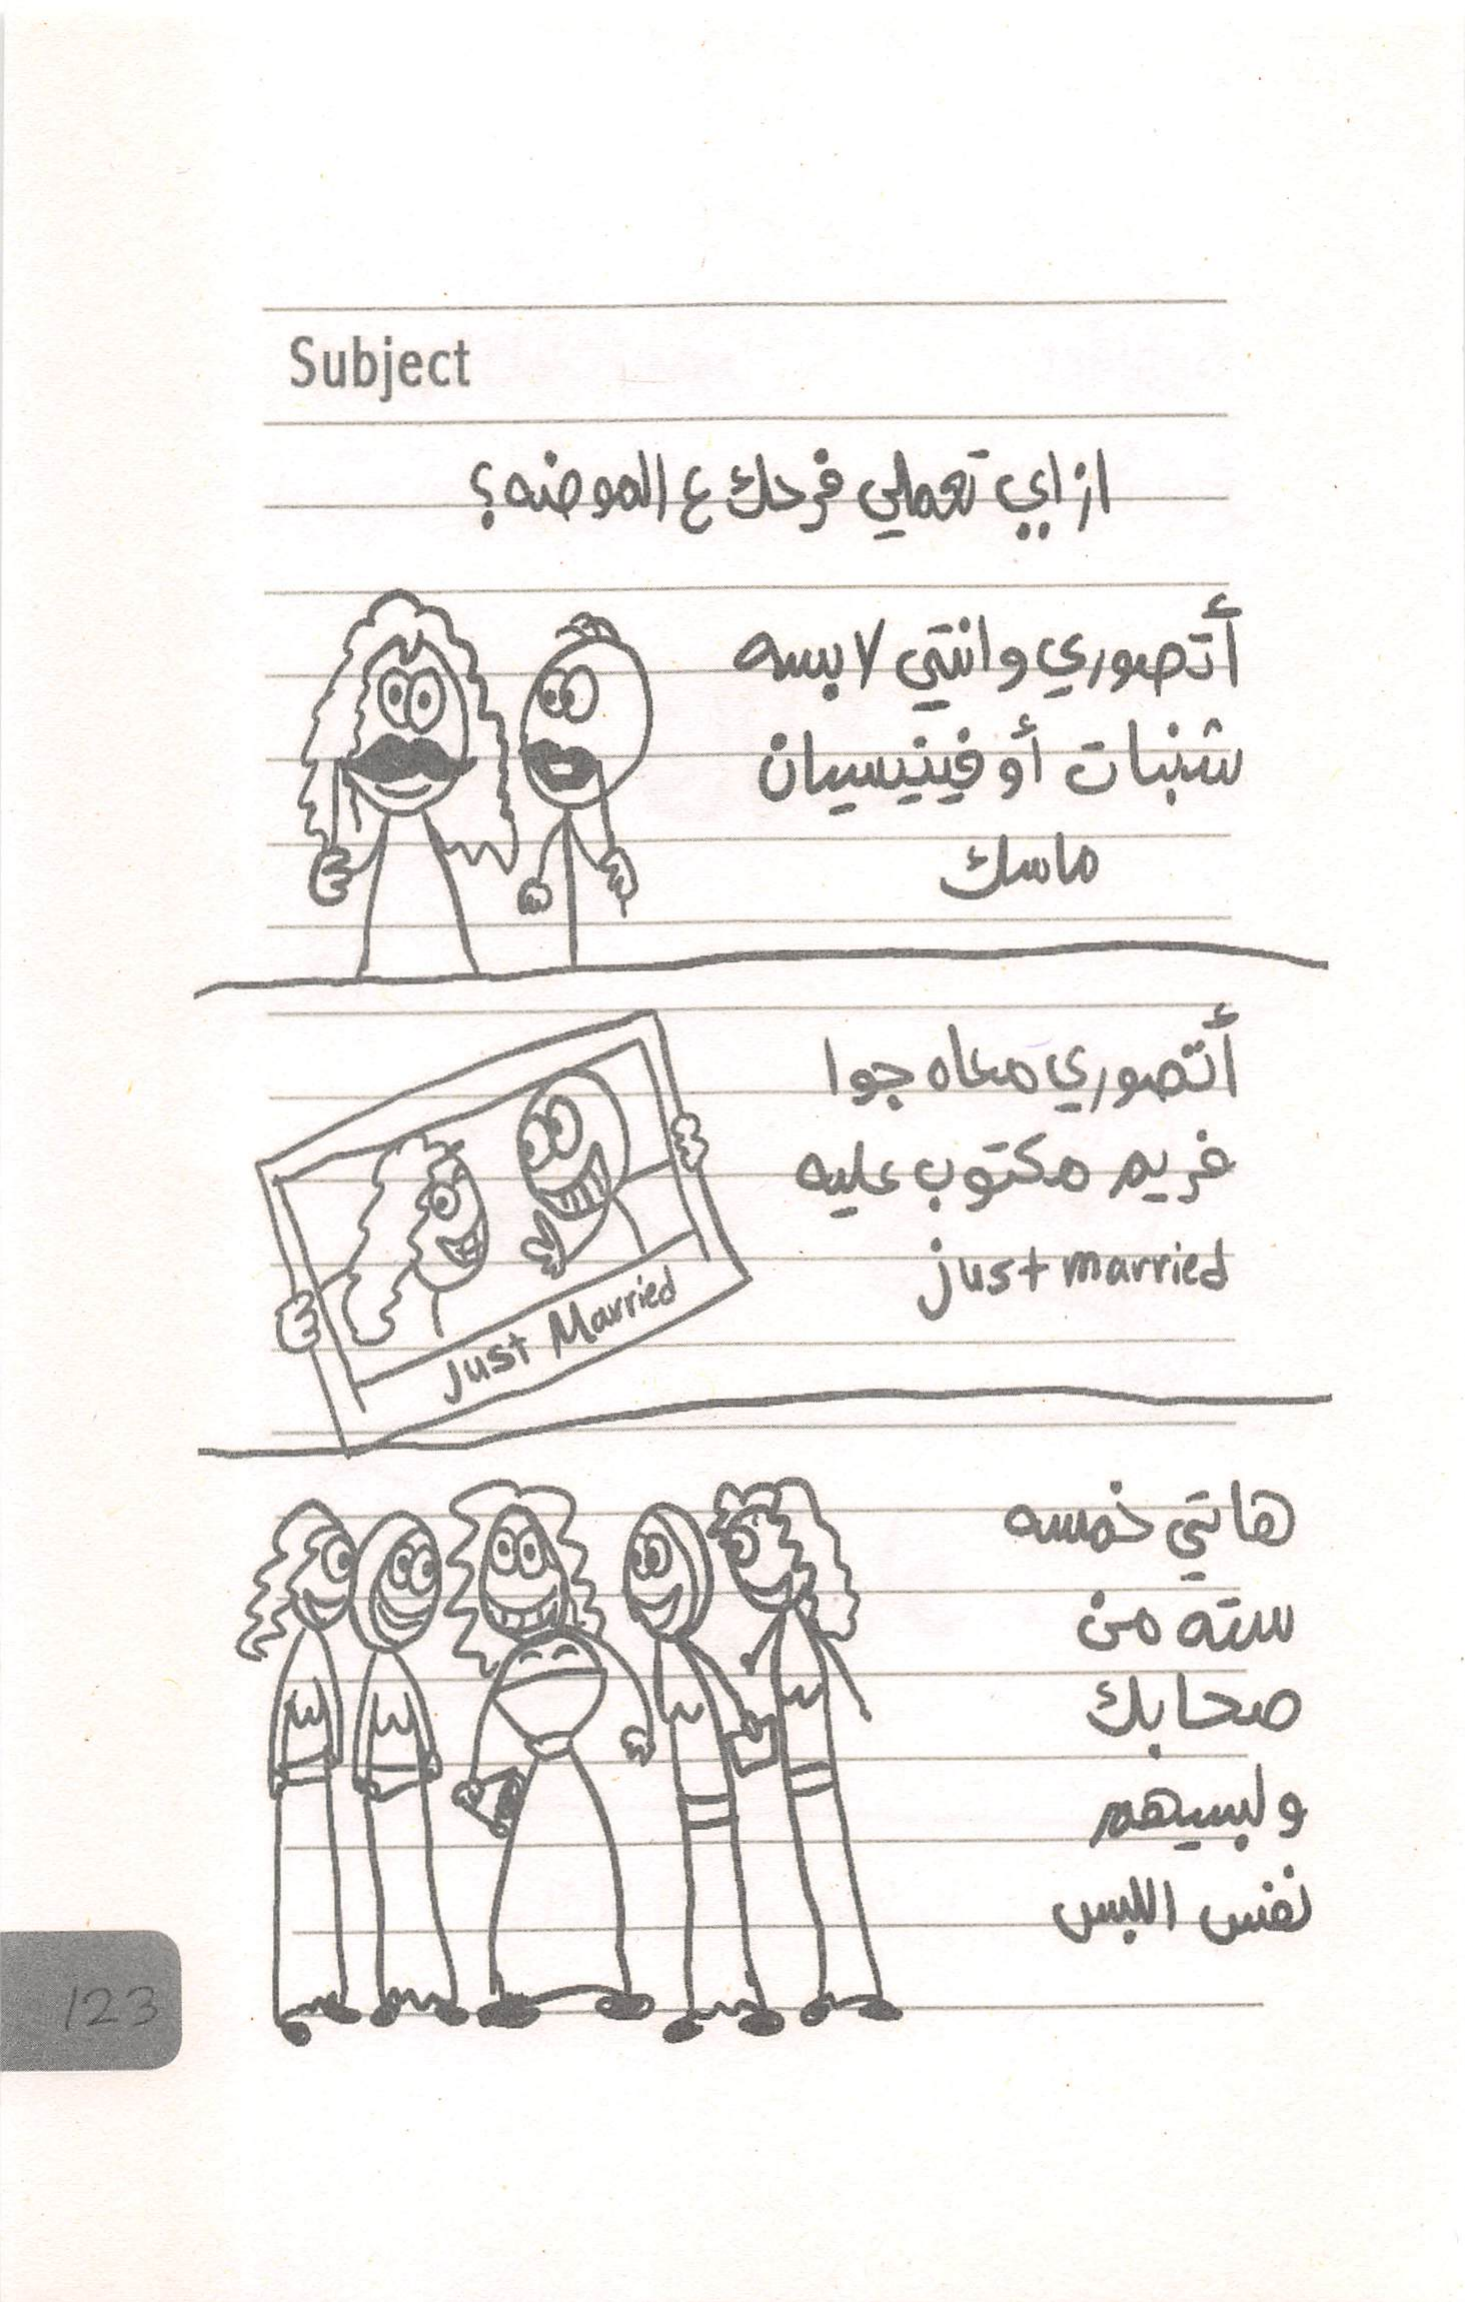 Subject
ازاي تعملي فرحك ع الموضه؟
أتصوري وانتي لابسه
شنبات أو فينيسيان
ماسك
أتصوري معاه جوا
فريم مكتوب عليه
just married
Just Married
هاتي خمسه
سته من
صحابك
ولبسيهم
نفس اللبس
123